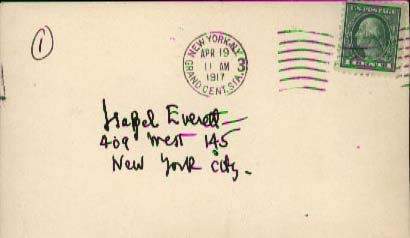 1
NEW YORK, N.Y.
APR 19
11 AM
1917
GRAND CENT. STA.
3
U.S. POSTAGE
Isabel Everett
409 West 145
New York City.